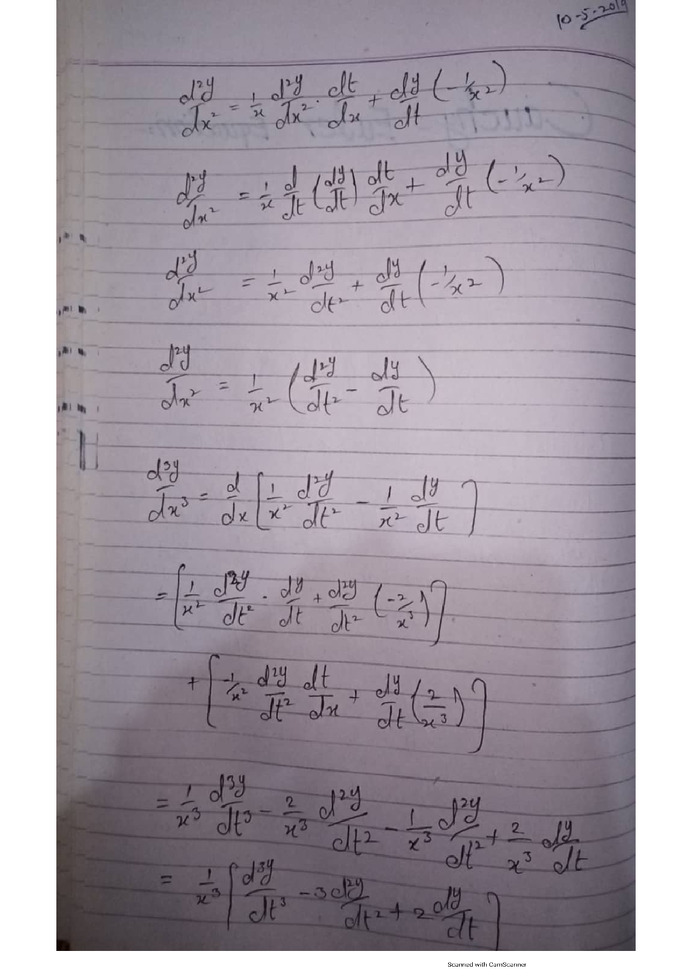 10-5-2019
d²y/dx² = 1/x d²y/dx² · dt/dx + dy/dt (-1/x²)
d²y/dx² = 1/x d/dt (dy/dt) dt/dx + dy/dt (-1/x²)
d²y/dx² = 1/x² d²y/dt² + dy/dt (-1/x²)
d²y/dx² = 1/x² (d²y/dt² - dy/dt)
d³y/dx³ = d/dx [1/x² d²y/dt² - 1/x² dy/dt]
= [1/x² d²y/dt² · dy/dt + d²y/dt² (-2/x³)]
+ [-1/x² d²y/dt² dt/dx + dy/dt (2/x³)]
= 1/x³ d³y/dt³ - 2/x³ d²y/dt² - 1/x³ d²y/dt² + 2/x³ dy/dt
= 1/x³ [d³y/dt³ - 3 d²y/dt² + 2 dy/dt]
Scanned with CamScanner